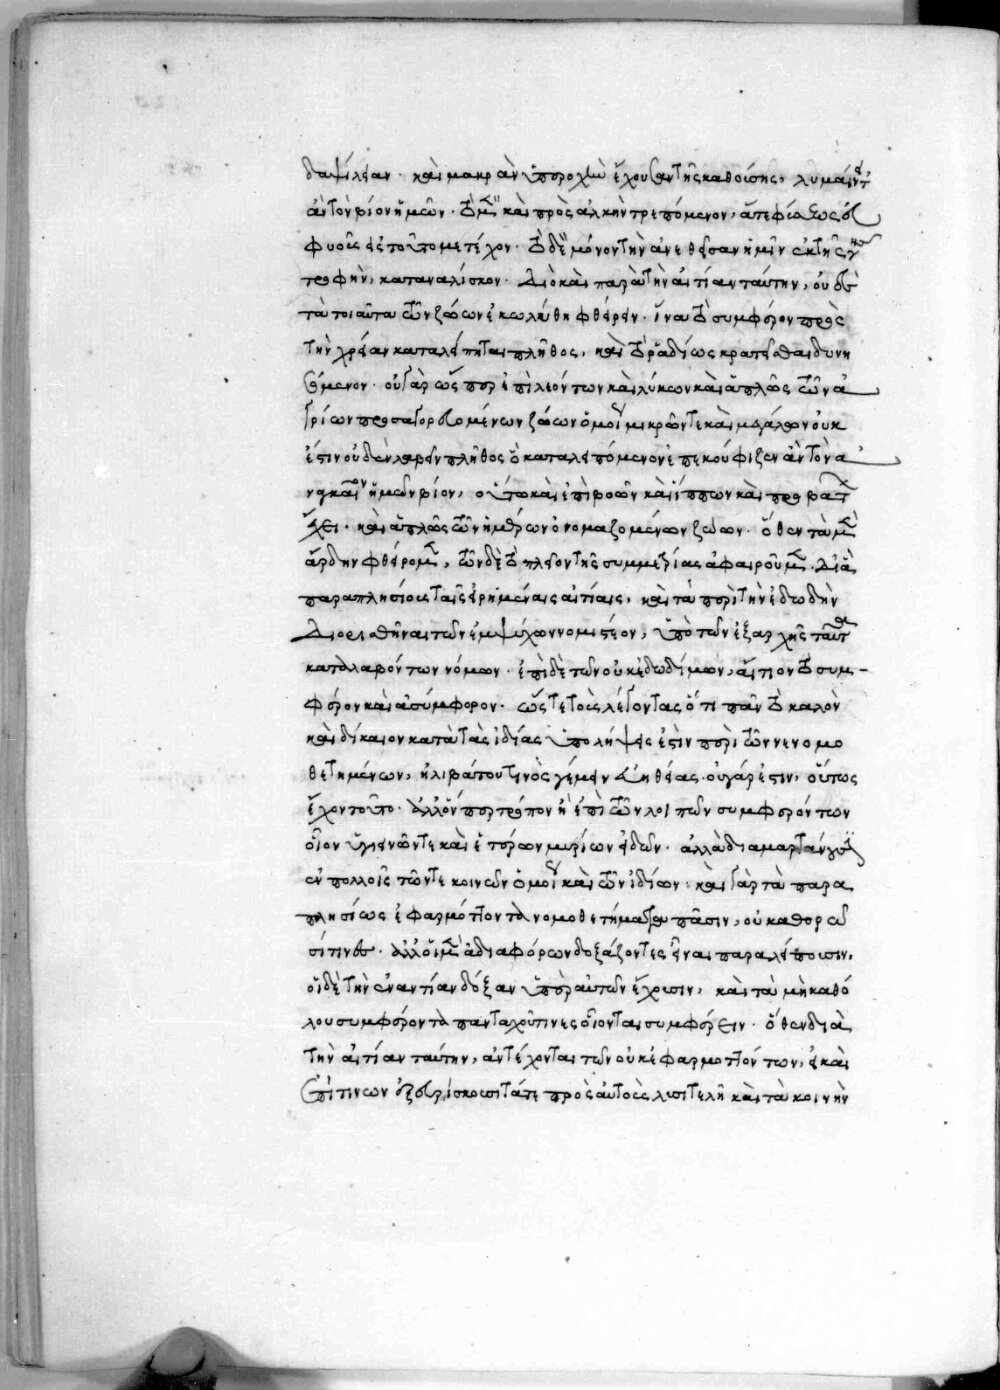 δαψίλειαν. καὶ μακρὰν ὑπεροχὴν ἔχουσαν τῆς καθ' οἵσης, λυμαίνετ
ἂν τὸν βίον ἡμῶν. τὸ μὲν καὶ πρὸς ἀλκὴν τρεπόμενον, ἅτε φία ἕως οὗ
φυοῖς εἰς τοῦτο μετέχον. τὸ δὲ μόνον τὴν ἀνεθεῖσαν ἡμῖν ἐκ τῆς γῆς
τροφὴν, καταναλίσκον. Διὸ καὶ παρ' αὐτὴν αἰτίαν ταύτην, οὐδὲ
τὰ τοιαῦτα τῶν ζώων ἐκωλύθη φθείρειν. ἵνα τὸ συμφέρον πρὸς
τὴν χρείαν καταλείπηται πλῆθος, καὶ τὸ ῥαδίως κρατεῖσθαι δυνη
σόμενον. οὐ γὰρ ὥσπερ ἐπὶ λεόντων καὶ λύκων καὶ ἁπλῶς τῶν ἀ
γρίων προσαγορευομένων ζώων ὁμοῦ μικρῶν τε καὶ μεγάλων οὐκ
ἔστιν οὐδὲν λαβεῖν πλῆθος ὃ καταλειπόμενον ἐπεκούφιζεν ἂν τὸν ἀ
ναγκαῖον ἡμῶν βίον, οὕτω καὶ ἐπὶ βοῶν καὶ ἵππων καὶ προβάτων
ἔχει. καὶ ἁπλῶς τῶν ἡμέρων ὀνομαζομένων ζώων. ὅθεν τὰ μὲν
ἄρδην φθείρομεν, τῶν δὲ τὸ πλεῖον τῆς συμμετρίας ἀφαιροῦμεν. Διὰ
παραπλησίους ταῖς εἰρημέναις αἰτίαις, καὶ τὰ περὶ τὴν ἐδωδὴν
Διορισθῆναι τῶν ἐμψύχων νομιστέον, ὑπὸ τῶν ἐξ ἀρχῆς ταῦτα
καταλαβόντων νόμων. ἐπὶ δὲ τῶν οὐκ ἐδωδίμων, αἴτιον τὸ συμ-
φέρον καὶ ἀσύμφορον. ὥστε τοὺς λέγοντας ὅτι πᾶν τὸ καλὸν
καὶ δίκαιον κατὰ τὰς ἰδίας ὑπολήψεις ἐστὶν περὶ τῶν νενομο
θετημένων, ἠλιβάτου τινὸς γέμειν εὐηθείας. οὐ γάρ ἐστιν, οὕτως
ἔχον τοῦτο. ἀλλ' ὅνπερ τρόπον ἢ ἐπὶ τῶν λοιπῶν συμφερόντων
οἷον ὑγιεινῶν τε καὶ ἑτέρων μυρίων εἰδῶν. ἀλλὰ διαμαρτάνουσιν
ἐν πολλοῖς τῶν τε κοινῶν ὁμοῦ καὶ τῶν ἰδίων. καὶ γὰρ τὰ παρα
πλησίως ἐφαρμόττοντα νομοθετήματα πᾶσιν, οὐ καθορῶ
σί τινες. ἀλλ' οἱ μὲν ἀδιαφόρων δοξάζοντες εἶναι παραλείπουσιν,
οἱ δὲ τὴν ἐναντίαν δόξαν ὑπὲρ αὐτῶν ἔχουσιν, καὶ τὰ μὴ καθό
λου συμφέροντα πανταχοῦ τινες οἴονται συμφέρειν. ὅθεν διὰ
τὴν αἰτίαν ταύτην, ἀντέχονται τῶν οὐκ ἐφαρμοττόντων, εἰ καὶ
ἐπί τινων ἐξευρίσκουσι τά τε πρὸς αὐτοὺς λυσιτελῆ καὶ τὰ κοινὴν